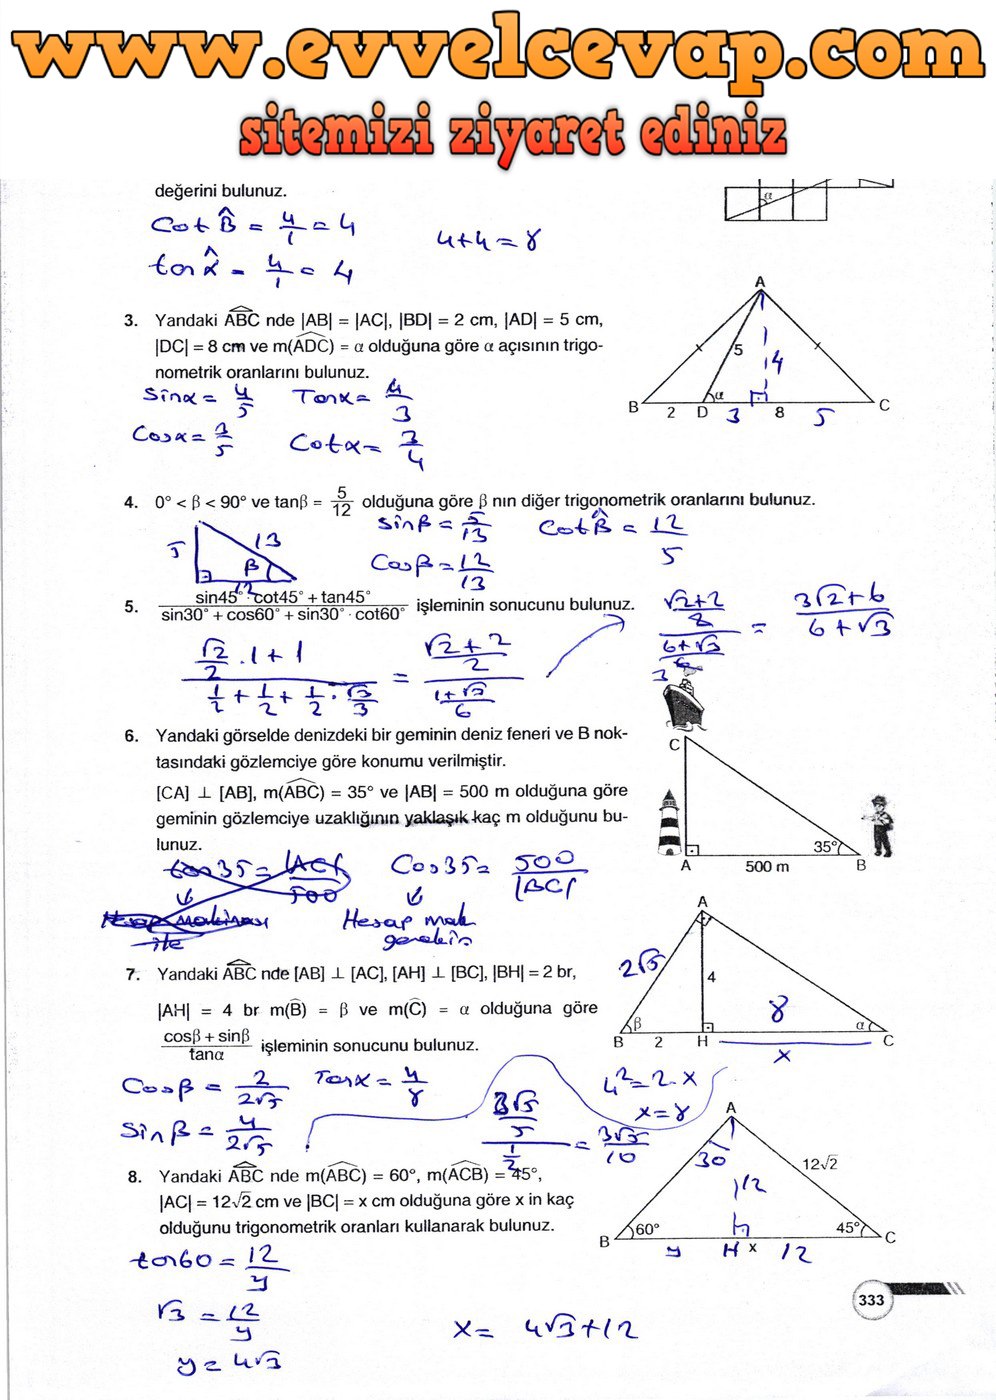 www.evvelcevap.com
sitemizi ziyaret ediniz
değerini bulunuz.
α
Cot B̂ = 4/1 = 4
4+4=8
tan α̂ = 4/1 = 4
3. Yandaki ABC nde |AB| = |AC|, |BD| = 2 cm, |AD| = 5 cm,
|DC| = 8 cm ve m(ADC) = α olduğuna göre α açısının trigo-
nometrik oranlarını bulunuz.
Sinα = 4/5 Tanα = 4/3
Cosα = 3/5 Cotα = 3/4
A
5
4
α
B 2 D 3 8 5 C
4. 0° < β < 90° ve tanβ = 5/12 olduğuna göre β nın diğer trigonometrik oranlarını bulunuz.
5 13 β 12
sinβ = 5/13 Cot B̂ = 12/5
Cosβ = 12/13
5. (sin45° · cot45° + tan45°)/(sin30° + cos60° + sin30° · cot60°) işleminin sonucunu bulunuz.
(√2/2 . 1 + 1)/(1/2 + 1/2 + 1/2 . √3/3) = ((√2+2)/2)/((1+√3)/6)
((√2+2)/2)/((6+√3)/6) = (3√2+6)/(6+√3)
3
6. Yandaki görselde denizdeki bir geminin deniz feneri ve B nok-
tasındaki gözlemciye göre konumu verilmiştir.
[CA] ⊥ [AB], m(ABC) = 35° ve |AB| = 500 m olduğuna göre
geminin gözlemciye uzaklığının yaklaşık kaç m olduğunu bu-
lunuz.
C
35°
A 500 m B
tan35 = |AC|/500 Cos35 = 500/|BC|
Hesap makinası
ile
Hesap mak
gerekir
7. Yandaki ABC nde [AB] ⊥ [AC], [AH] ⊥ [BC], |BH| = 2 br,
|AH| = 4 br m(B) = β ve m(C) = α olduğuna göre
(cosβ + sinβ)/tanα işleminin sonucunu bulunuz.
A
2√5
4
8
β α
B 2 H C
x
Cosβ = 2/2√5 Tanα = 4/8
Sinβ = 4/2√5
4² = 2·x
x = 8
(3√5/5)/(1/2) = 3√5/10
8. Yandaki ABC nde m(ABC) = 60°, m(ACB) = 45°,
|AC| = 12√2 cm ve |BC| = x cm olduğuna göre x in kaç
olduğunu trigonometrik oranları kullanarak bulunuz.
A
30
12√2
12
60° 45°
B y H x 12 C
tan60 = 12/y
√3 = 12/y
y = 4√3
x = 4√3+12
333